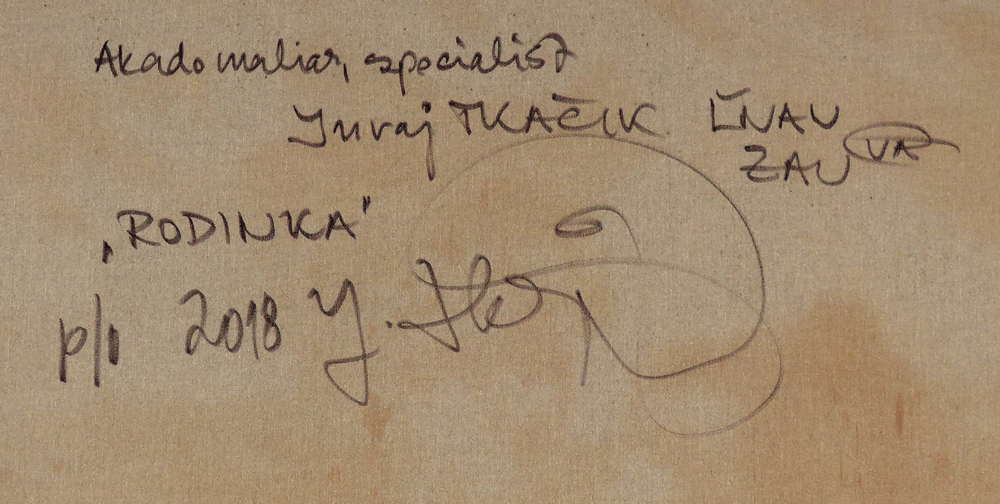 Akad. maliar, špecialist
Juraj TKAČIK ĽŠNAU
ZAU VA
„RODINKA"
p/o 2018 J. Tkáč